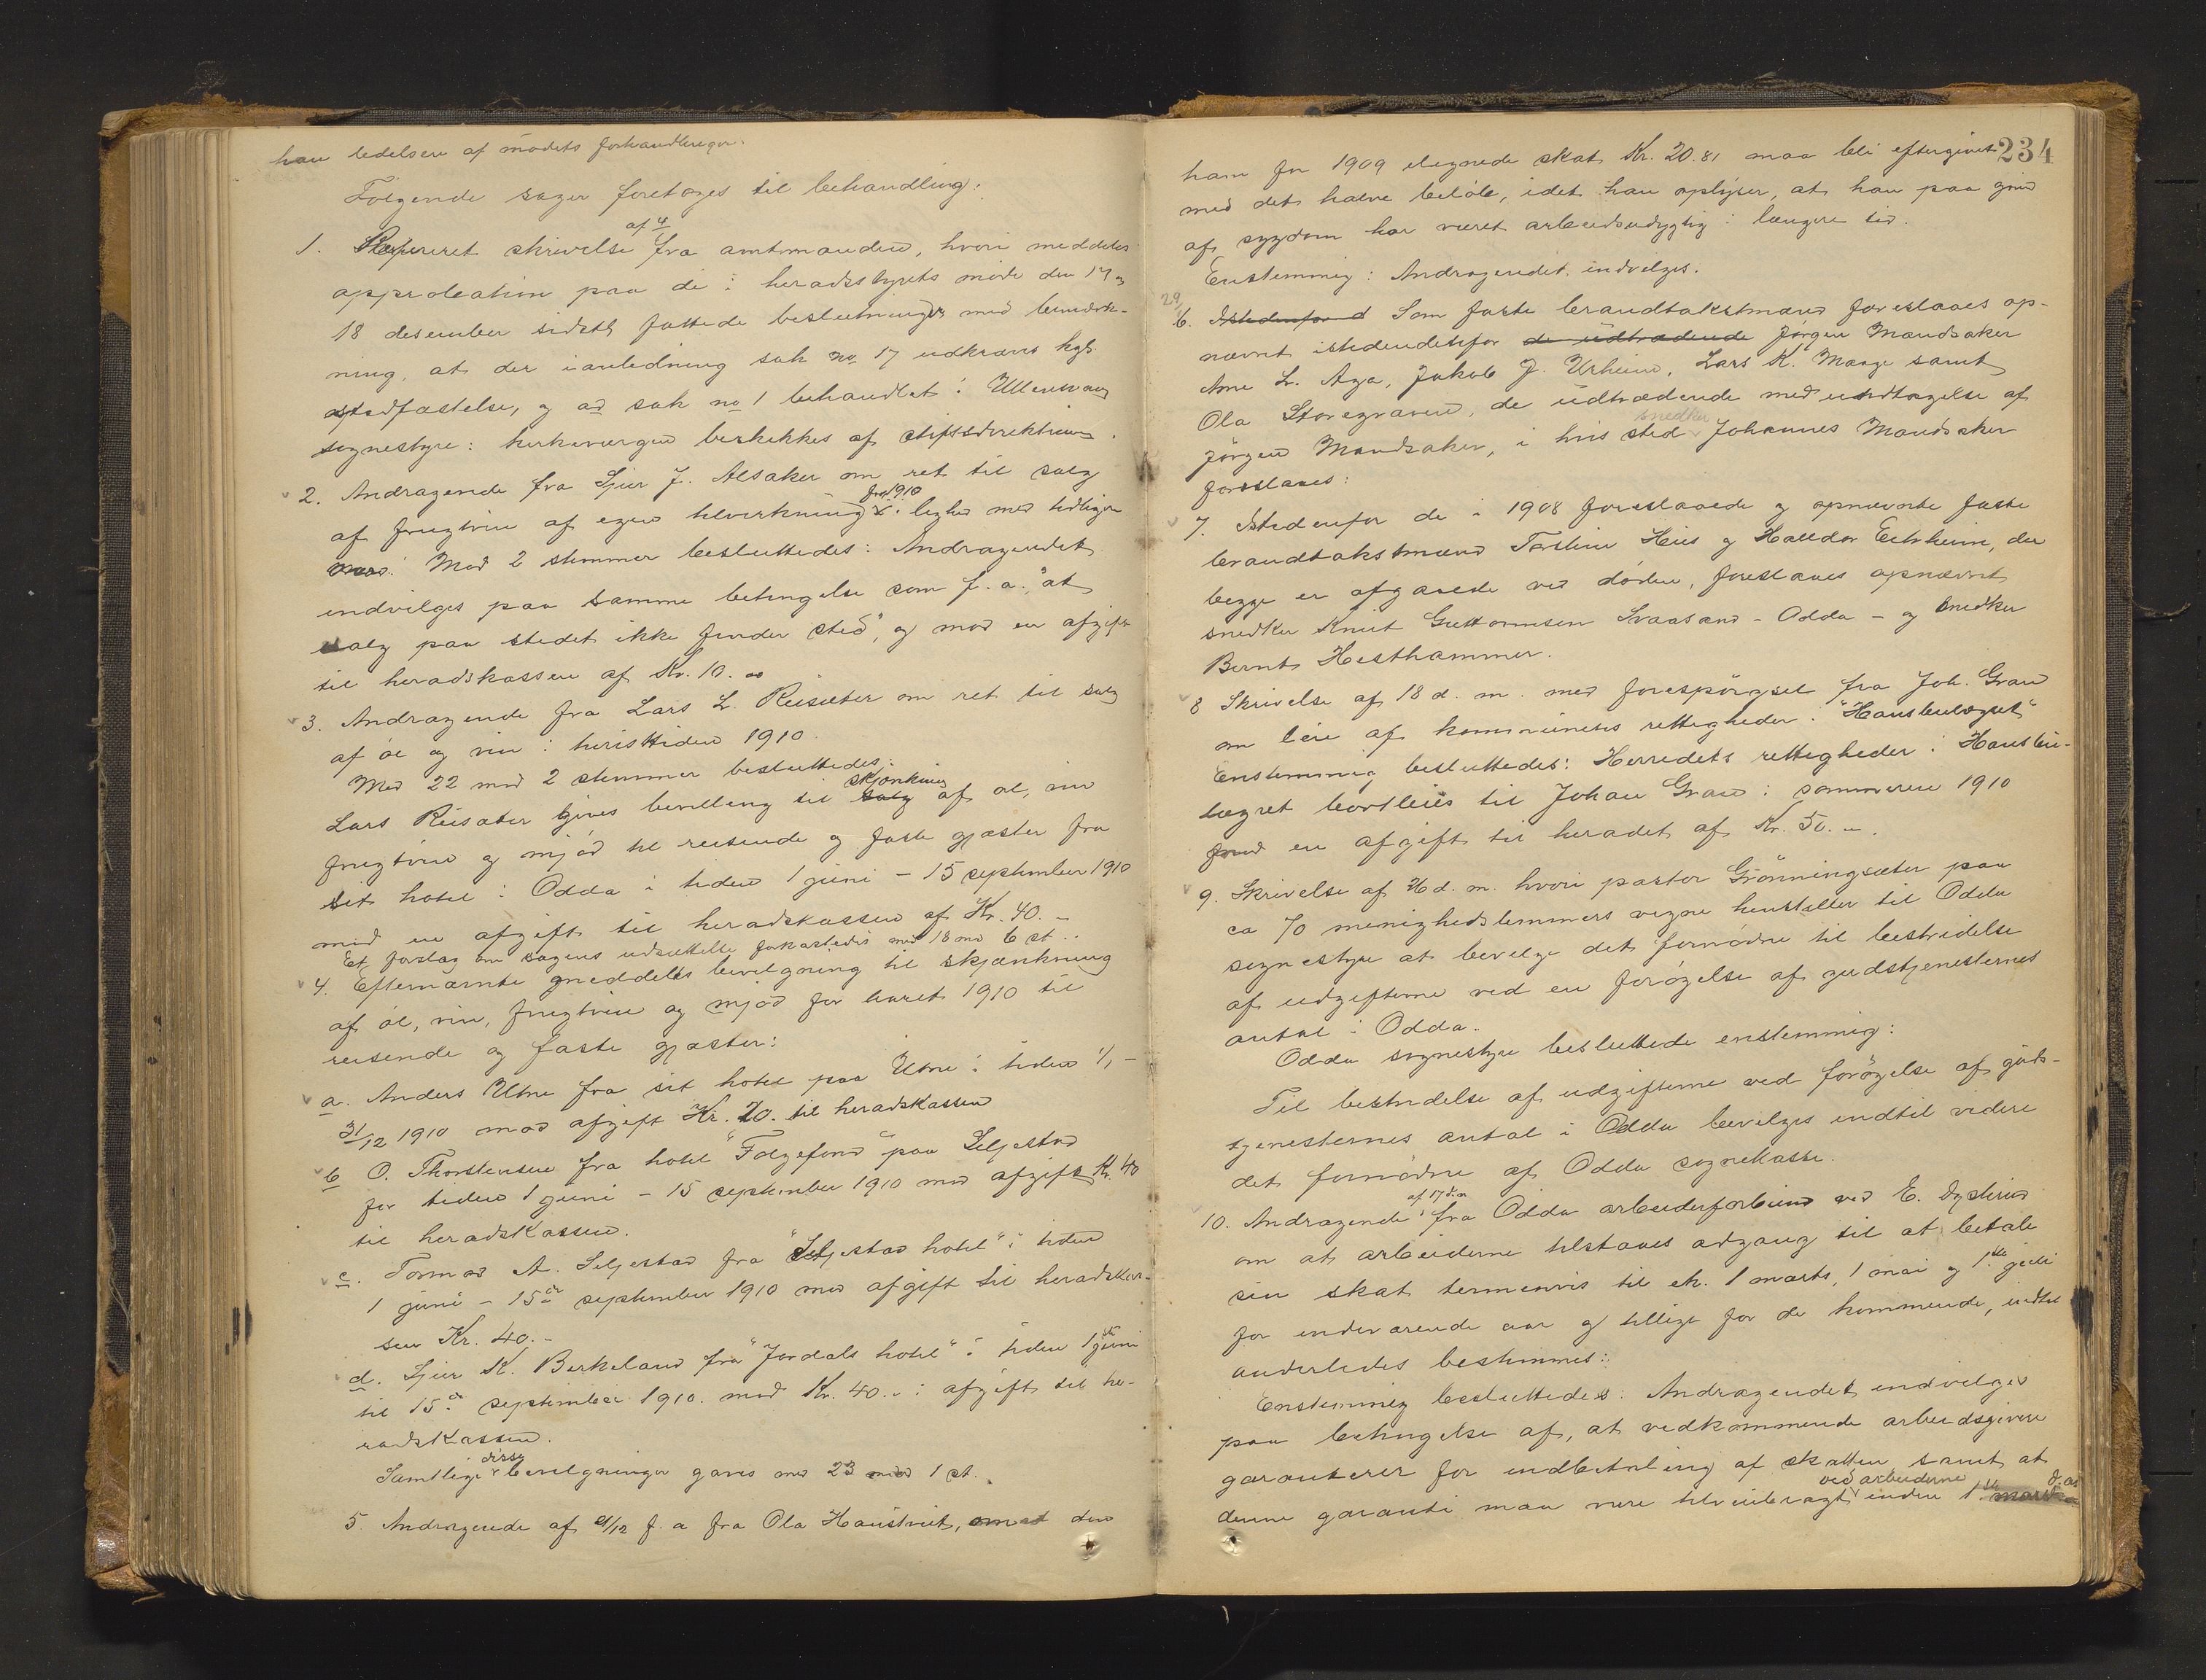 han ledelsen af mødets forhandlinger.
Følgende sager foretoges til behandling:
1. Refereret skrivelse af 4 fra amtmanden, hvori meddeles
approbation paa de i heradsstyrets møde den 17 og
18 desember sidstl. fattede beslutninger med bemærk-
ning, at der i anledning sak no 17 udkræves kgl.
stadfæstelse, og at sak no 1 behandlet i Ullensvang
sognestyre: kirkeværgen beskikkes af stiftsdirektionen.
2. Andragende fra Sjur J. Alsaker om ret til salg
af frugtvin af egen tilvirkning for 1910 i lighed med tidligere
aar. Mod 2 stemmer besluttedes: Andragendet
indvilges paa samme betingelse som f. a. "at
salg paa stedet ikke finder sted", og mod en afgift
til heradskassen af Kr. 10.00
3. Andragende fra Lars L. Reisæter om ret til salg
af øl og vin i turisttiden 1910.
Med 22 mod 2 stemmer besluttedes:
Lars Reisæter gives bevilling til salg skjænkning af øl, vin
frugtvin og mjød til reisende og faste gjæster fra
sit hotel i Odda i tiden 1 juni – 15 september 1910
mod en afgift til heradskassen af Kr. 40. –
Et forslag om sagens udsættelse forkastedes med 18 mod 6 st..
4. Efternævnte meddeles bevilgning til skjænkning
af øl, vin, frugtvin og mjød for aaret 1910 til
reisende og faste gjæster:
a. Anders Utne fra sit hotel paa Utne i tiden 1/1 –
31/12 1910 mod afgift Kr. 20. til heradskassen
b O. Thorstensen fra hotel "Folgefond" paa Seljestad
for tiden 1 juni – 15 september 1910 mod afgift Kr. 40
til heradskassen.
c. Tormod A. Seljestad fra "Seljestad hotel" i tiden
1 juni – 15de september 1910 mod afgift til heradskas-
sen Kr. 40. –
d. Sjur K. Berkeland fra "Jordals hotel" i tiden 1ste juni
til 15de september 1910. mod Kr. 40. – i afgift til he-
radskassen.
Samtlige disse bevilgninger gaves med 23 mod 1 st.
5. Andragende af 21/12 f. a fra Ola Haustveit, om at den
234
ham for 1909 ilignede skat Kr. 20.81 maa bli eftergivet
med det halve beløb, idet han oplyser, at han paa grund
af sygdom har været arbeidsudygtig i længere tid.
Enstemmig: Andragendet indvilges.
29/
6. Istedenfor d Som faste brandtakstmænd foreslaaes op-
nævnt istedendetfor de udtrædende Jørgen Mandsaker
Arne L. Aga, Jakob J. Urheim, Lars K. Mauge samt
Ola Storegraven, de udtrædende med undtagelse af
Jørgen Mandsaker, i hvis sted snedker Johannes Mandsaker
foreslaaes:
7. Istedenfor de i 1908 foreslaaede og opnævnte faste
brandtakstmænd Torstein Hus og Halldor Eitrheim, der
begge er afgaaede ved døden, foreslaaes opnævnt
snedker Knut Guttormsen Svaasand – Odda – og snedker
Bernt Hesthammer.
8 Skrivelse af 18 d. m. med forespørgsel fra Joh. Gran
om leie af kommunens rettigheder i "Hausbulægret"
Enstemmig besluttedes: Herredets rettigheder i Hausbu-
lægret bortleies til Johan Gran i sommeren 1910
mod en afgift til heradet af Kr. 50. –.
9. Skrivelse af d. m. hvori pastor Grønningsæter paa
ca 70 menighedslemmers vegne henstiller til Odda
sognestyre at bevilge det fornødne til bestridelse
af udgifterne ved en forøgelse af gudstjenesternes
antal i Odda.
Odda sognestyre besluttede enstemmig:
Til bestridelse af udgifterne ved forøgelse af guds-
tjenesternes antal i Odda bevilges indtil videre
det fornødne af Odda sognekasse.
10. Andragende af 17 d. m fra Odda arbeiderforbund ved E. Dystvus
om at arbeiderne tilstaaes adgang til at betale
sin skat terminvis til ek. 1 marts, 1 mai og 1ste juli
for indeværende aar og tillige for de kommende, indtil
anderledes bestemmes:
Enstemmig besluttedes: Andragendet indvilges
paa betingelse af, at vedkommende arbeidsgivere
garanterer for indbetaling af skatten, samt at
denne garanti maa være tilveiebragt ved arbeiderne inden 1ste marts d. as